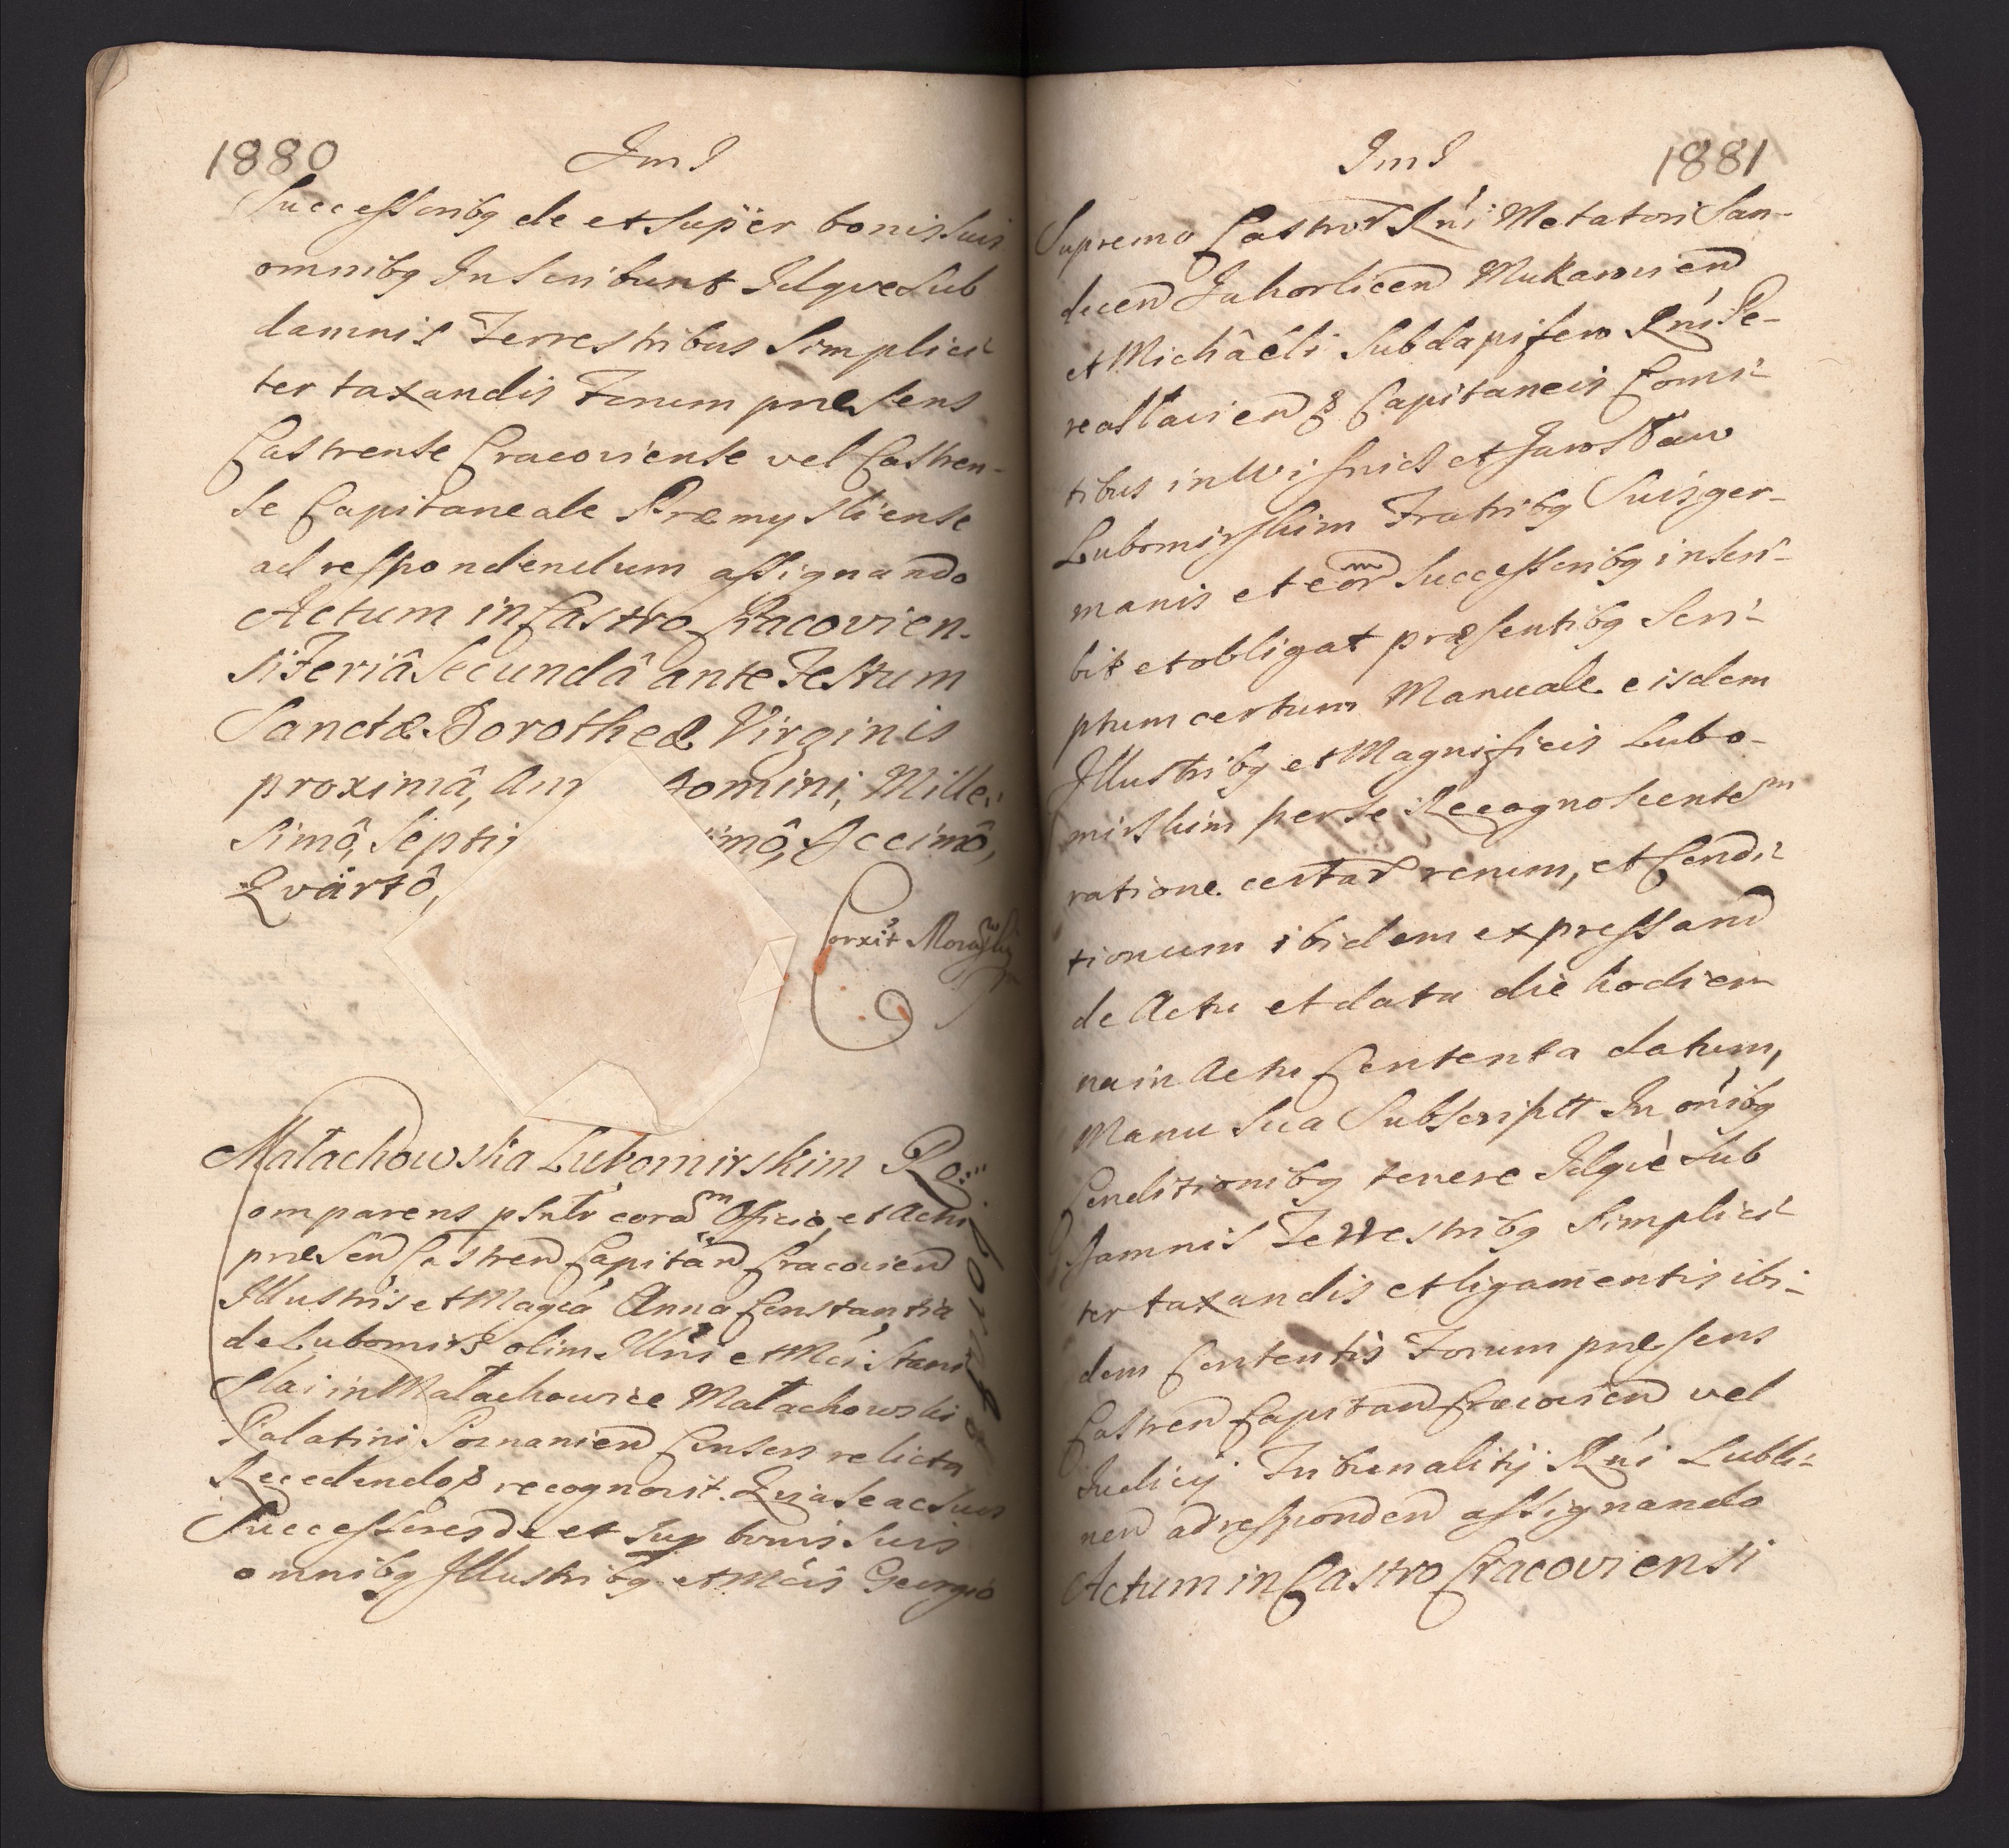 1880
Jms
Successoribq de et super bonis suis
omnibq Inscribunt Idqve sub
damnis Terrestribus Simplici
ter taxandis Forum præsens
Castrense Cracoviense vel Castren-
se Capitaneale Præmysliense
ad respondendum assignando
Actum in Castro Cracovien-
si Feriâ Secundâ ante Festum
Sanctæ Dorotheæ Virginis
proximâ, An Domini, Mille-
simô, Septi imô, Decimô,
Qvartô,
Corxit
Małachowska Lubomirskim Ro
omparens psntr coram Officio, et Actis
præsen Castren Capitan Cracovien
Illustris et Magca Anna Constantia
de Lubomirz olim Illris et Mci Stani
slai in Małachowice Małachowski
Palatini Posnanien Consors relicta
Recedendo recognovit. Quia se ac suos
Successores de et sup bonis suis
omnibq Illustribq et Mcis Georgio
1881
Jms
Supremo Castror Rni Metatori San-
decen Jahorlicen Mukarovien
et Michâeli Subdapifero Rni Pe-
reasłavien Capitaneis Comi-
tibus in Wisnicz et Jarosław
Lubomirskim Fratribq Suis ger-
manis et eor m Successoribq inscri-
bit et obligat præsentibq Scri-
ptum certum Manuale eisdem
Illustribq et Magnificis Lubo-
mirskim per se Recognoscentem
ratione certar rerum, et Condi-
tionum ibidem expressand
de Actu et datu die hodier
na in Actu Contenta datum,
Manu Sua Subscriptt In onibq
Conditionibq tenere Idqve sub
Damnis Terrestribq Simplici-
ter taxandis et ligamentis ibi-
dem Contentis Forum præsens
Castren Capitan Cracovien vel
Judicij Tribunalitij Rni Lubli-
nen ad responden assignando
Actum in Castro Cracoviensi